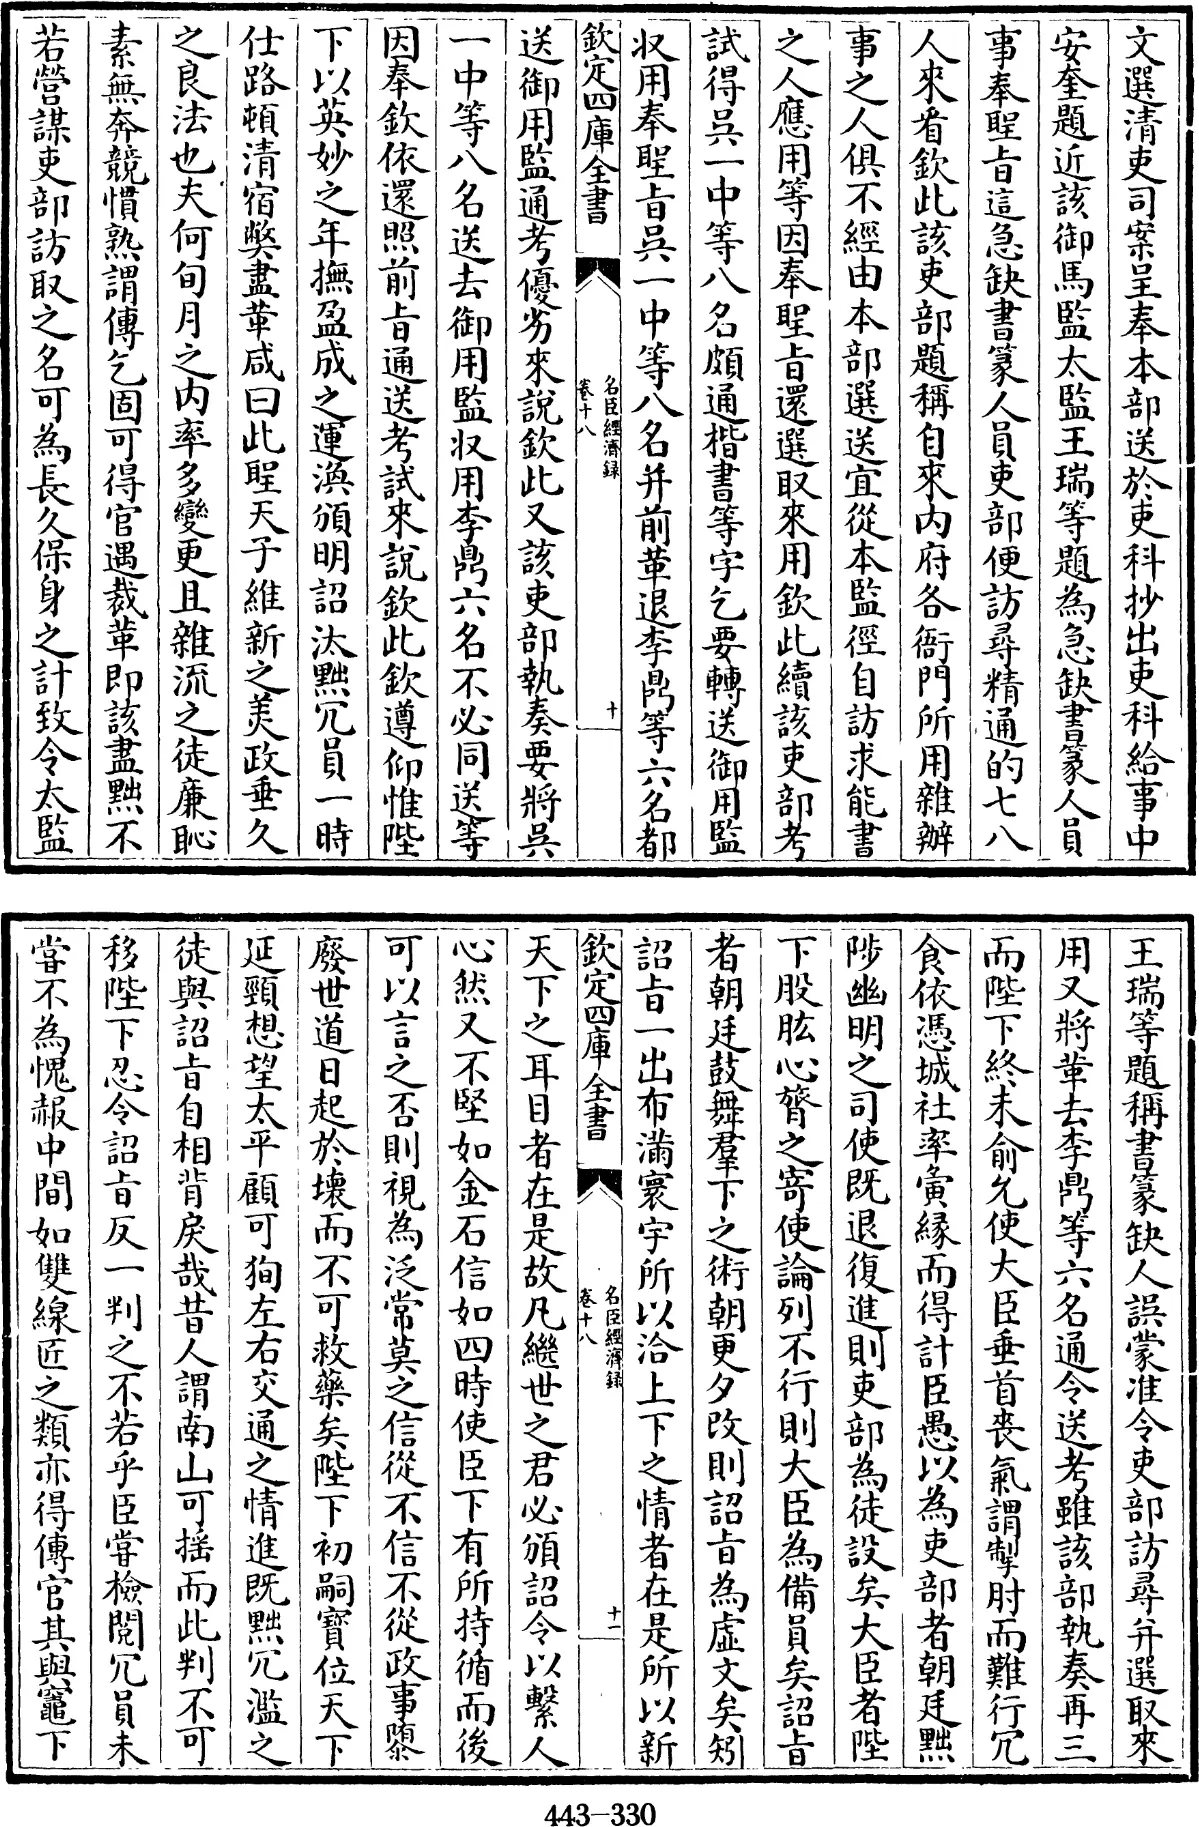 文選清吏司案呈奉本部送於吏科抄出吏科給事中
安奎題近該御馬監太監王瑞等題為急缺書篆人員
事奉聖旨這急缺書篆人員吏部便訪尋精通的七八
人來看欽此該吏部題稱自來内府各衙門所用雜辦
事之人俱不經由本部選送宜從本監徑自訪求能書
之人應用等因奉聖旨還選取來用欽此續該吏部考
試得吳一中等八名頗通楷書等字乞要轉送御用監
収用奉聖旨吳一中等八名并前革退李鼎等六名都
欽定四庫全書
名臣經濟録
卷十八
十
送御用監通考優劣來說欽此又該吏部執奏要將吳
一中等八名送去御用監收用李鼎六名不必同送等
因奉欽依還照前旨通送考試來說欽此欽遵仰惟陛
下以英妙之年撫盈成之運渙頒明詔汰黜冗員一時
仕路頓清宿弊盡革咸曰此聖天子維新之美政垂久
之良法也夫何旬月之内率多變更且雜流之徒廉恥
素無奔競慣熟謂傳乞固可得官遇裁革即該盡黜不
若營謀吏部訪取之名可為長久保身之計致令太監
王瑞等題稱書篆缺人誤蒙准令吏部訪尋并選取來
用又將革去李鼎等六名通令送考雖該部執奏再三
而陛下終未俞允使大臣垂首喪氣謂掣肘而難行冗
食依憑城社率夤縁而得計臣愚以為吏部者朝廷黜
陟幽明之司使既退復進則吏部為徒設矣大臣者陛
下股肱心膂之寄使論列不行則大臣為備員矣詔旨
者朝廷鼓舞羣下之術朝更夕改則詔旨為虚文矣矧
詔旨一出布滿寰宇所以洽上下之情者在是所以新
欽定四庫全書
名臣經濟録
卷十八
十一
天下之耳目者在是故凡繼世之君必頒詔令以繫人
心然又不堅如金石信如四時使臣下有所持循而後
可以言之否則視為泛常莫之信從不信不從政事隳
廢世道日起於壞而不可救藥矣陛下初嗣寶位天下
延頸想望太平顧可狥左右交通之情進既黜冗濫之
徒與詔旨自相背戾哉昔人謂南山可揺而此判不可
移陛下忍令詔旨反一判之不若乎臣嘗檢閱冗員未
嘗不為愧赧中間如雙線匠之類亦得傳官其與竈下
443-330